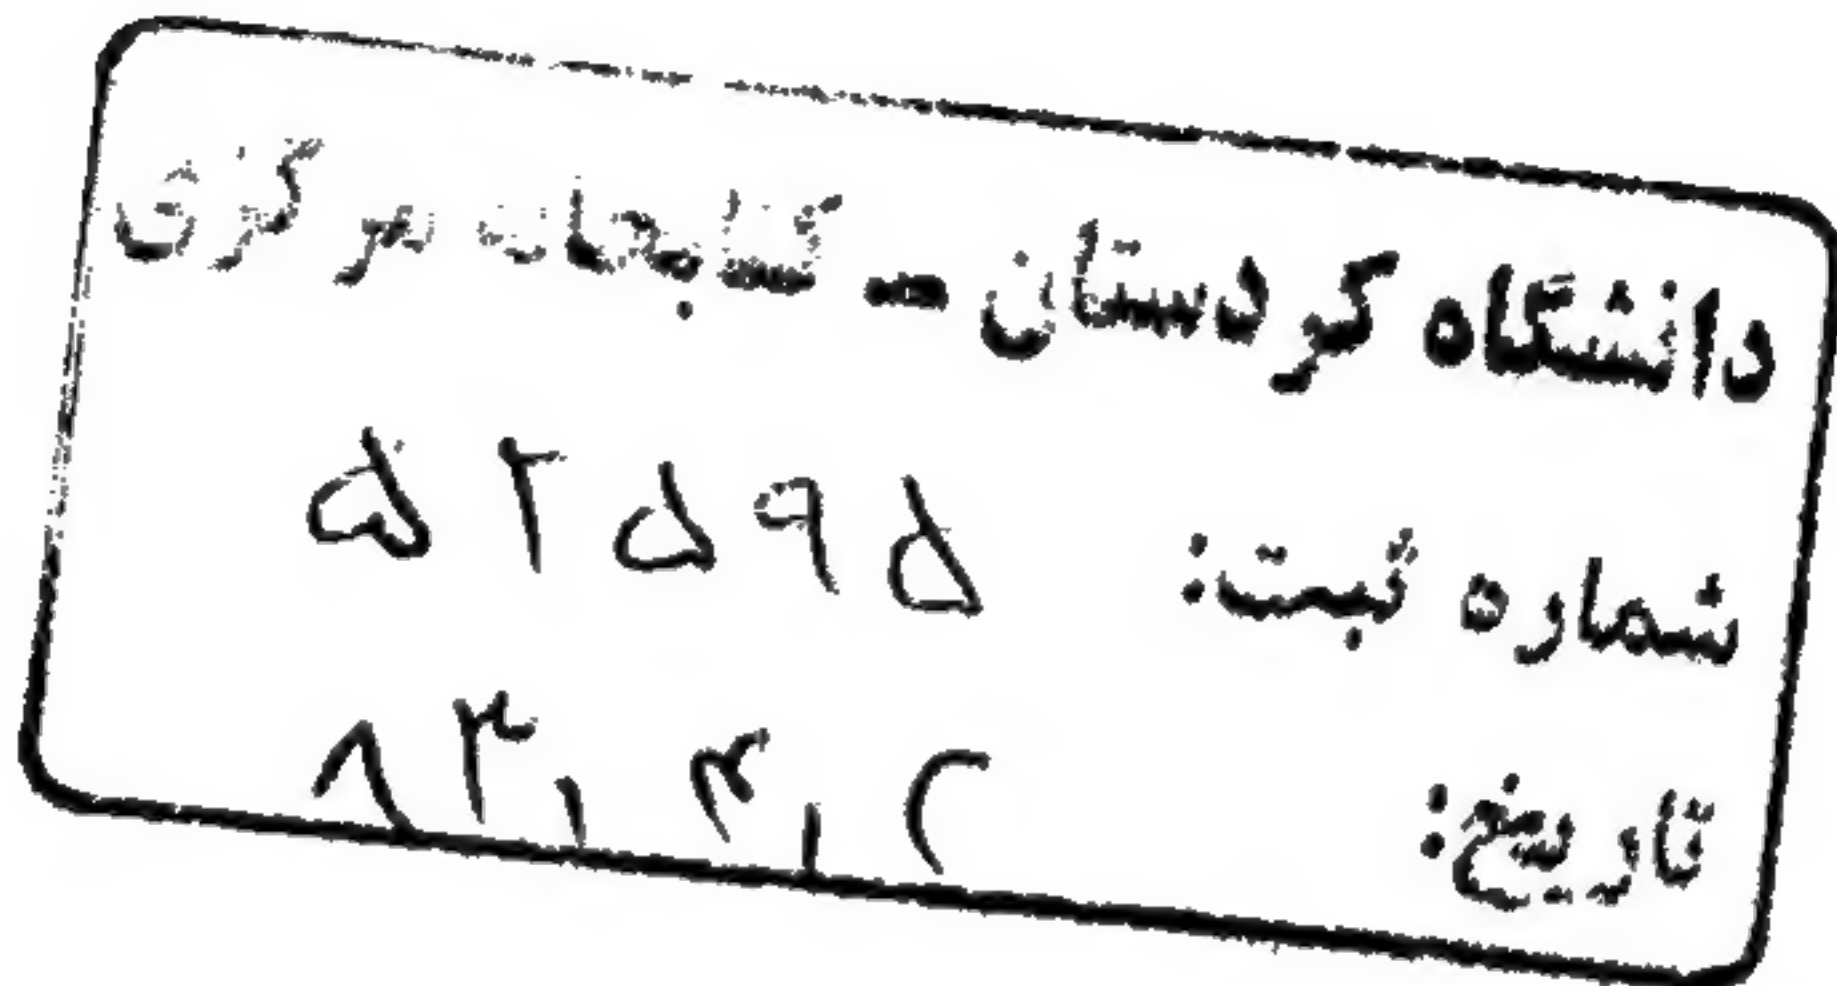 دانشگاه کردستان - کتابخانه مرکزی
شماره ثبت: ۵۲۵۹۵
تاریخ: ۸۳,۳,۲